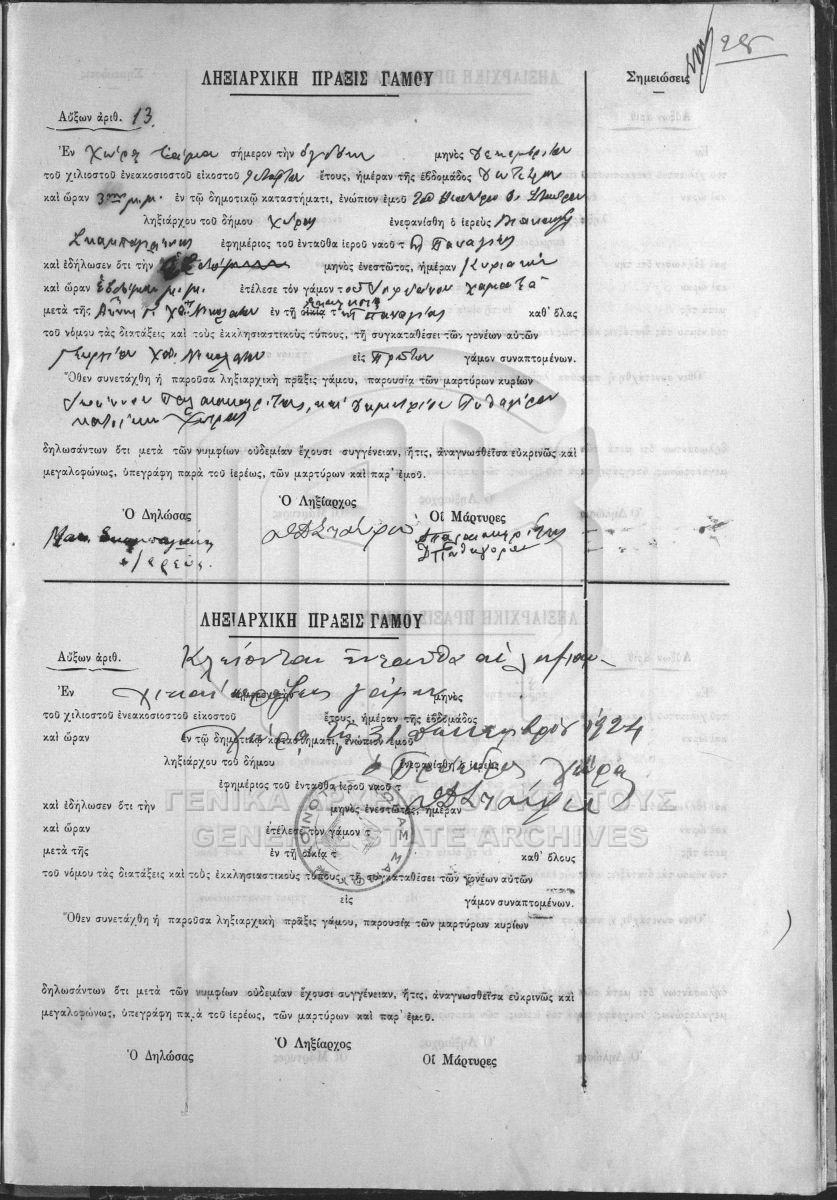 28
ΛΗΞΙΑΡΧΙΚΗ ΠΡΑΞΙΣ ΓΑΜΟΥ
Σημειώσεις
Αὔξων ἀριθ. 13
Ἐν Χώρᾳ Σάμου σήμερον τὴν ὀγδόην μηνὸς Δεκεμβρίου
τοῦ χιλιοστοῦ ἐνεακοσιοστοῦ εἰκοστοῦ ἔτους, ἡμέραν τῆς ἑβδομάδος Δευτέραν
καὶ ὥραν 3ην μ.μ. ἐν τῷ δημοτικῷ καταστήματι, ἐνώπιον ἐμοῦ
ληξιάρχου τοῦ δήμου Χώρας ἐνεφανίσθη ὁ ἱερεὺς
ἐφημέριος τοῦ ἐνταῦθα ἱεροῦ ναοῦ τῆς Παναγίας
καὶ ἐδήλωσεν ὅτι τὴν μηνὸς ἐνεστῶτος, ἡμέραν Κυριακὴν
καὶ ὥραν ἑβδόμην μ.μ. ἐτέλεσε τὸν γάμον τοῦ
μετὰ τῆς Ἄννης ἐν τῇ οἰκίᾳ τ Παναγίας καθ᾽ ὅλας
τοῦ νόμου τὰς διατάξεις καὶ τοὺς ἐκκλησιαστικοὺς τύπους, τῇ συγκαταθέσει τῶν γονέων αὐτῶν
Γεωργίου Χ΄΄ Νικολάου εἰς πρῶτον γάμον συναπτομένων.
Ὅθεν συνετάχθη ἡ παροῦσα ληξιαρχικὴ πρᾶξις γάμου, παρουσίᾳ τῶν μαρτύρων κυρίων
Ἰωάννου καὶ Δημητρίου Πυθαγόρου
κατοίκων Χώρας
δηλωσάντων ὅτι μετὰ τῶν νυμφίων οὐδεμίαν ἔχουσι συγγένειαν, ἥτις, ἀναγνωσθεῖσα εὐκρινῶς καὶ
μεγαλοφώνως, ὑπεγράφη παρὰ τοῦ ἱερέως, τῶν μαρτύρων καὶ παρ᾽ ἐμοῦ.
Ὁ Δηλώσας
Ὁ Ληξίαρχος
Οἱ Μάρτυρες
ἱερεύς
Δ Πυθαγόρας
ΛΗΞΙΑΡΧΙΚΗ ΠΡΑΞΙΣ ΓΑΜΟΥ
Αὔξων ἀριθ. Κλείονται ἐνταῦθα αἱ ληξιαρ-
Ἐν χικαὶ πράξεις γάμων μηνὸς
τοῦ χιλιοστοῦ ἐνεακοσιοστοῦ εἰκοστοῦ ἔτους, ἡμέραν τῆς ἑβδομάδος
καὶ ὥραν ἐν τῷ δημοτικῷ καταστήματι, ἐνώπιον ἐμοῦ
τῇ 31 Δεκεμβρίου 1924
ληξιάρχου τοῦ δήμου ἐνεφανίσθη ὁ ἱερεὺς
ὁ Πρόεδρος Χώρας
ἐφημέριος τοῦ ἐνταῦθα ἱεροῦ ναοῦ τ
ΓΕΝΙΚΑ ΑΡΧΕΙΑ ΤΟΥ ΚΡΑΤΟΥΣ
GENERAL STATE ARCHIVES
καὶ ἐδήλωσεν ὅτι τὴν μηνὸς ἐνεστῶτος, ἡμέραν
καὶ ὥραν ἐτέλεσε τὸν γάμον τ
μετὰ τῆς ἐν τῇ οἰκίᾳ τ καθ᾽ ὅλους
τοῦ νόμου τὰς διατάξεις καὶ τοὺς ἐκκλησιαστικοὺς τύπους, τῇ συγκαταθέσει τῶν γονέων αὐτῶν
εἰς γάμον συναπτομένων.
Ὅθεν συνετάχθη ἡ παροῦσα ληξιαρχικὴ πρᾶξις γάμου, παρουσίᾳ τῶν μαρτύρων κυρίων
δηλωσάντων ὅτι μετὰ τῶν νυμφίων οὐδεμίαν ἔχουσι συγγένειαν, ἥτις, ἀναγνωσθεῖσα εὐκρινῶς καὶ
μεγαλοφώνως, ὑπεγράφη παρὰ τοῦ ἱερέως, τῶν μαρτύρων καὶ παρ᾽ ἐμοῦ.
Ὁ Δηλώσας
Ὁ Ληξίαρχος
Οἱ Μάρτυρες